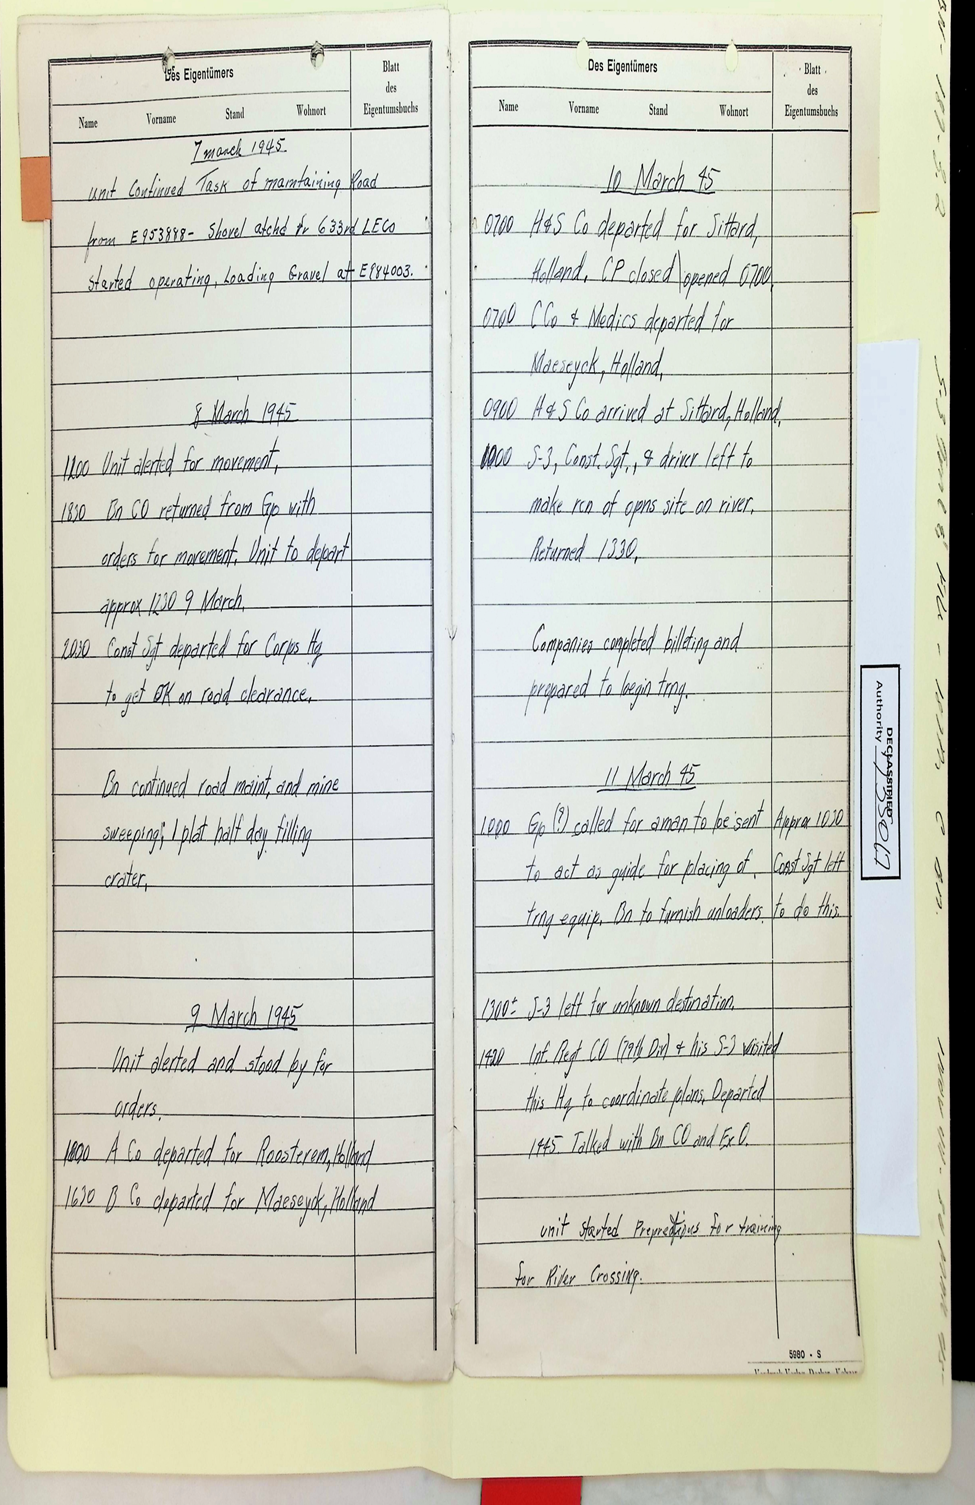 Des Eigentümers
Blatt
des
Eigentumsbuchs
Name Vorname Stand Wohnort
7 march 1945
Unit Continued Task of maintaining Road
from E953888- Shovel atchd fr 633rd LECo
Started operating, Loading Gravel at E984003.
8 March 1945
1200 Unit alerted for movement.
1830 Bn CO returned from Gp with
orders for movement. Unit to depart
approx 1230 9 March.
2030 Const Sgt departed for Corps Hq
to get OK on road clearance.
Bn continued road maint, and mine
sweeping; 1 plat half day filling
crater.
9 March 1945
Unit alerted and stood by for
orders.
A Co departed for Roosteren, Holland
1630 B Co departed for Maeseyck, Holland
Des Eigentümers
Blatt
des
Eigentumsbuchs
Name Vorname Stand Wohnort
10 March 45
0700 H&S Co departed for Sittard,
Holland. CP closed\opened 0700.
0700 C Co & Medics departed for
Maeseyck, Holland.
0900 H&S Co arrived at Sittard, Holland.
S-3, Const. Sgt., & driver left to
make rcn of opns site on river.
Returned 1330.
Companies completed billeting and
prepared to begin trng.
11 March 45
1000 Gp (?) called for a man to be sent
to act as guide for placing of
trng equip. Bn to furnish unloaders.
Approx 1030
Const Sgt left
to do this.
1300± S-3 left for unknown destination.
1420 Inf. Regt CO (79th Div) & his S-3 visited
this Hq to coordinate plans. Departed
1445. Talked with Bn CO and Ex O.
unit started Preprations for training
for River Crossing.
5980 - S
DECLASSIFIED
Authority 735017